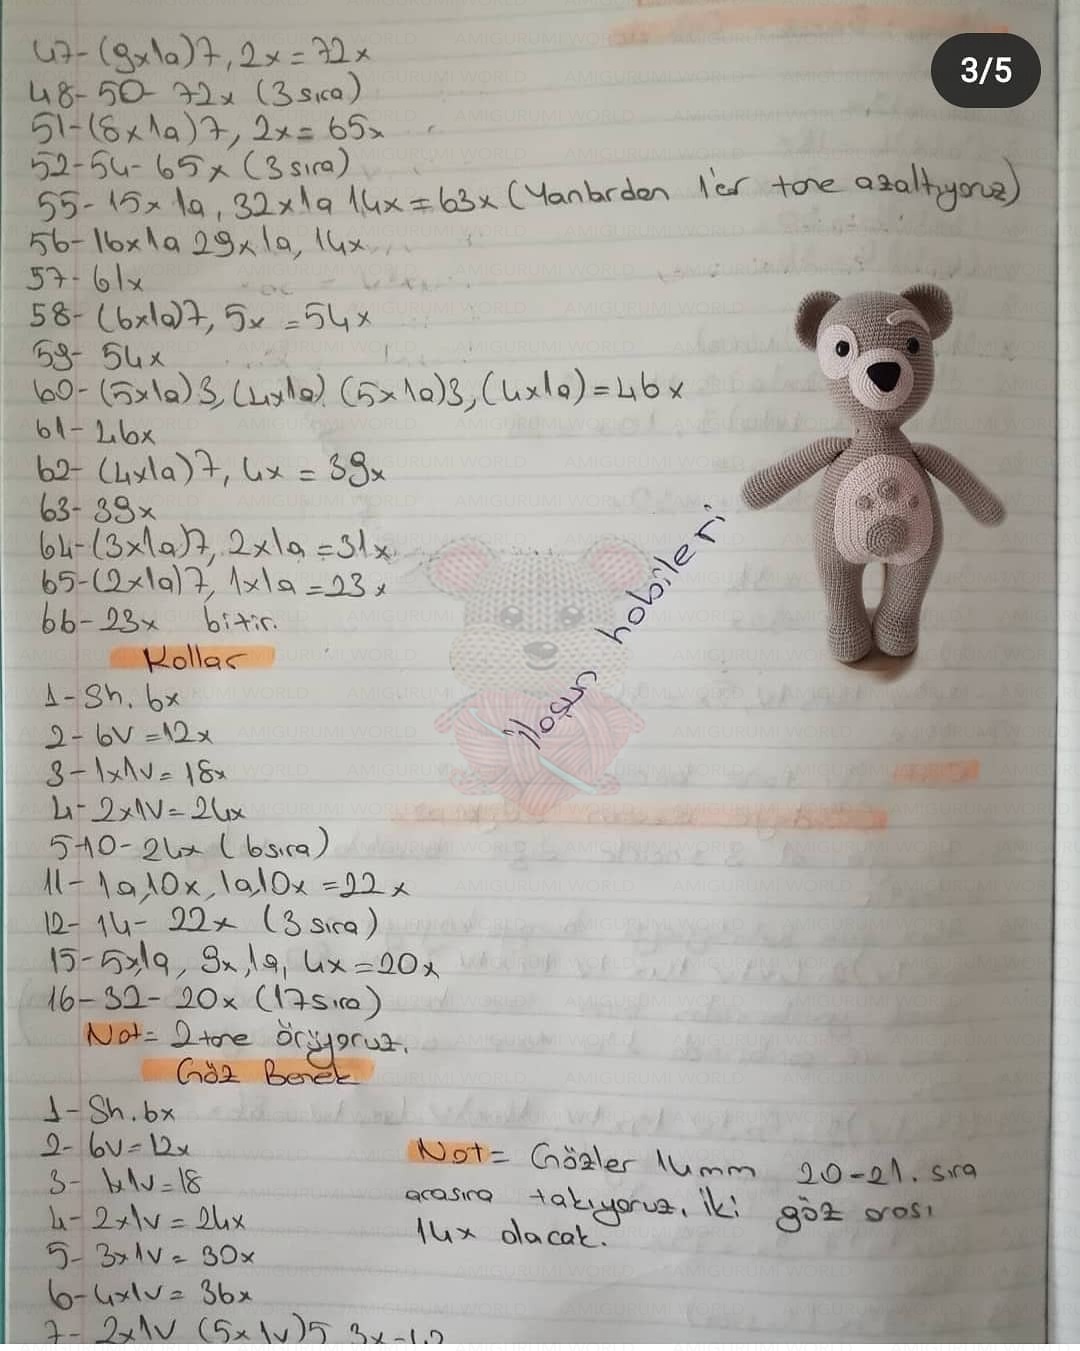 3/5
47-(9x1a)7, 2x=72x
48-50- 72x (3 sıra)
51-(8x1a)7, 2x= 65x
52-54- 65x (3 sıra)
55- 15x 1a, 32x1a 14x=63x (Yanlardan 1'er tane azaltıyoruz)
56-16x1a 29x1a, 14x
57- 61x
58- (6x1a)7, 5x =54x
59- 54x
60-(5x1a)3, (4x1a) (5x1a)3, (4x1a)=46x
61- 46x
62- (4x1a)7, 4x = 39x
63- 39x
64-(3x1a)7, 2x1a =31x
65-(2x1a)7, 1x1a =23x
66-23x bitir.
iloşun hobileri
Kollar
1-Sh. 6x
2- 6V =12x
3-1x1v= 18x
4- 2x1V= 24x
5-10- 24x (6sıra)
11- 1a,10x, 1a,10x =22x
12- 14- 22x (3 sıra)
15-5x1a, 9x,1a, 4x=20x
16-32- 20x (17sıra)
Not= 2 tane örüyoruz.
Göz Bebek
1-Sh. 6x
2- 6V=12x
3- 1x1v=18
4- 2x1v = 24x
5- 3x1v= 30x
6-4x1v= 36x
7- 2x1v (5x1v)5 3x-42
Not= Gözler 14mm 20-21. sıra
arasına takıyoruz, iki göz arası
14x olacak.
AMIGURUMI WORLD